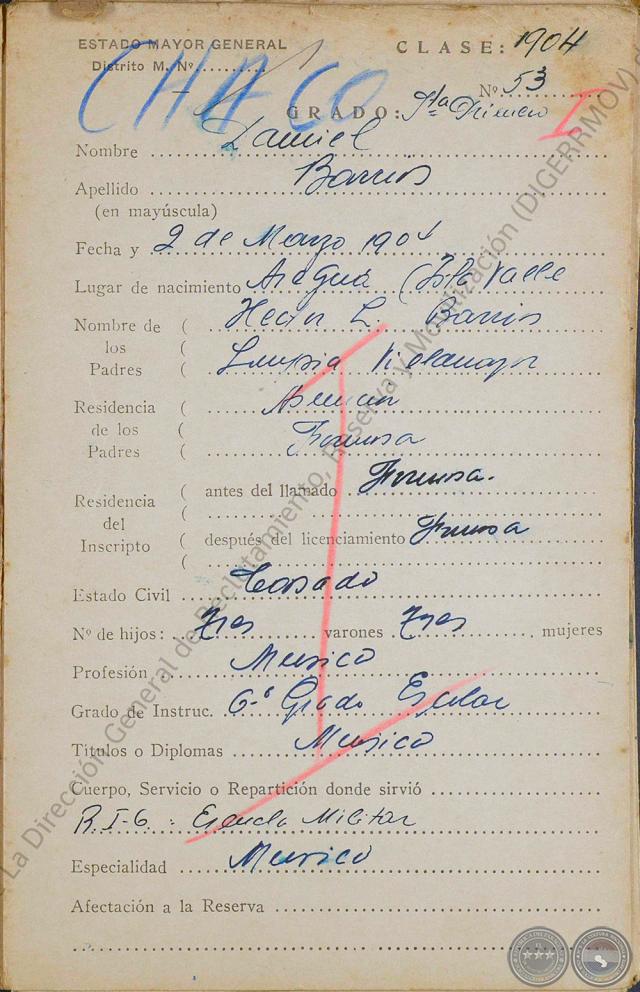 ESTADO MAYOR GENERAL
Distrito M. Nº..........
CHACO
CLASE: 1904
Nº 53
GRADO: Sta Primero
I
Nombre Daniel
Apellido Barrios
(en mayúscula)
Fecha y 2 de Marzo 1904
Lugar de nacimiento Aregua ( Isla Valle
Nombre de los Padres ( Hector L. Barrios
( Villamayor
Residencia de los Padres ( Asuncion
( Formosa
Residencia del Inscripto ( antes del llamado Formosa.
( después del licenciamiento Formosa
Estado Civil Casado
Nº de hijos: Tres varones Tres mujeres
Profesión Musico
Grado de Instruc. 6º Grado Escolar
Títulos o Diplomas Musico
Cuerpo, Servicio o Repartición donde sirvió
R.I-6 : Escuela Militar
Especialidad Musico
Afectación a la Reserva
La Dirección General de Reclutamiento, Reserva y Movilización (DIGERRMOV)